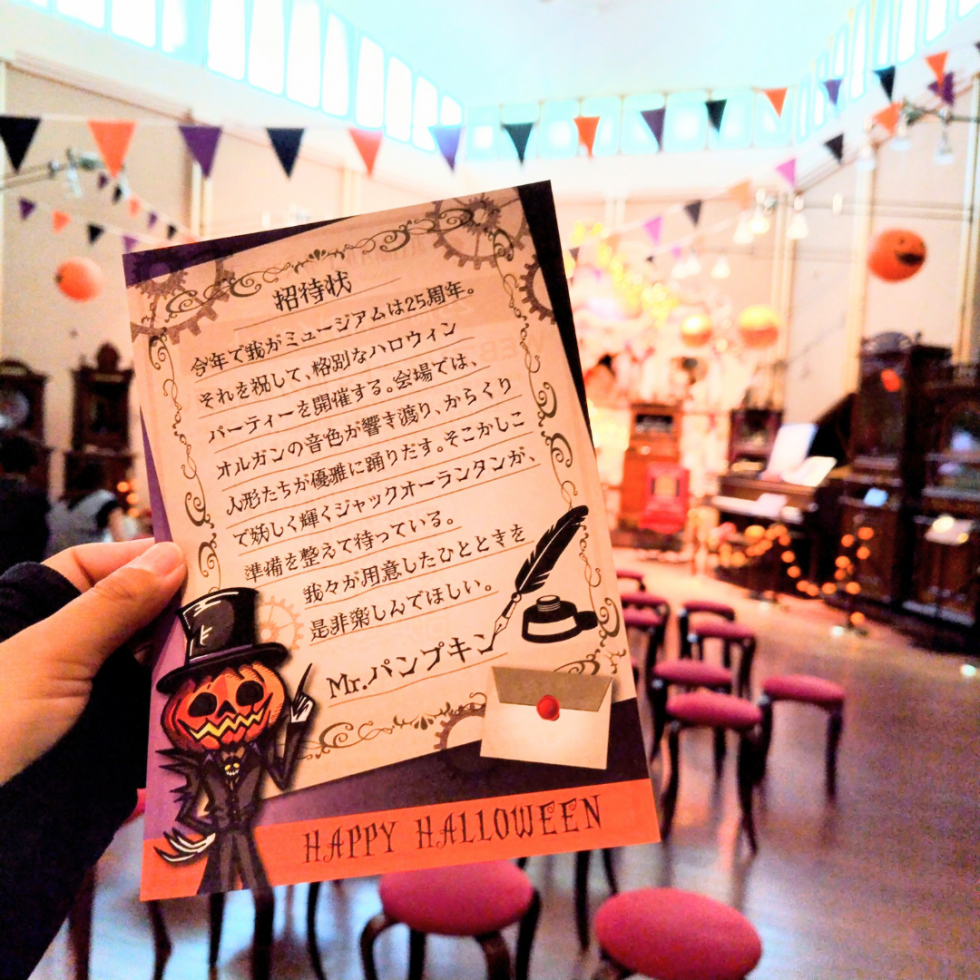 招待状
今年で我がミュージアムは25周年。
それを祝して、格別なハロウィン
パーティーを開催する。会場では、
オルガンの音色が響き渡り、からくり
人形たちが優雅に踊りだす。そこかしこ
で妖しく輝くジャックオーランタンが、
準備を整えて待っている。
我々が用意したひとときを
是非楽しんでほしい。
Mr.パンプキン
HAPPY HALLOWEEN